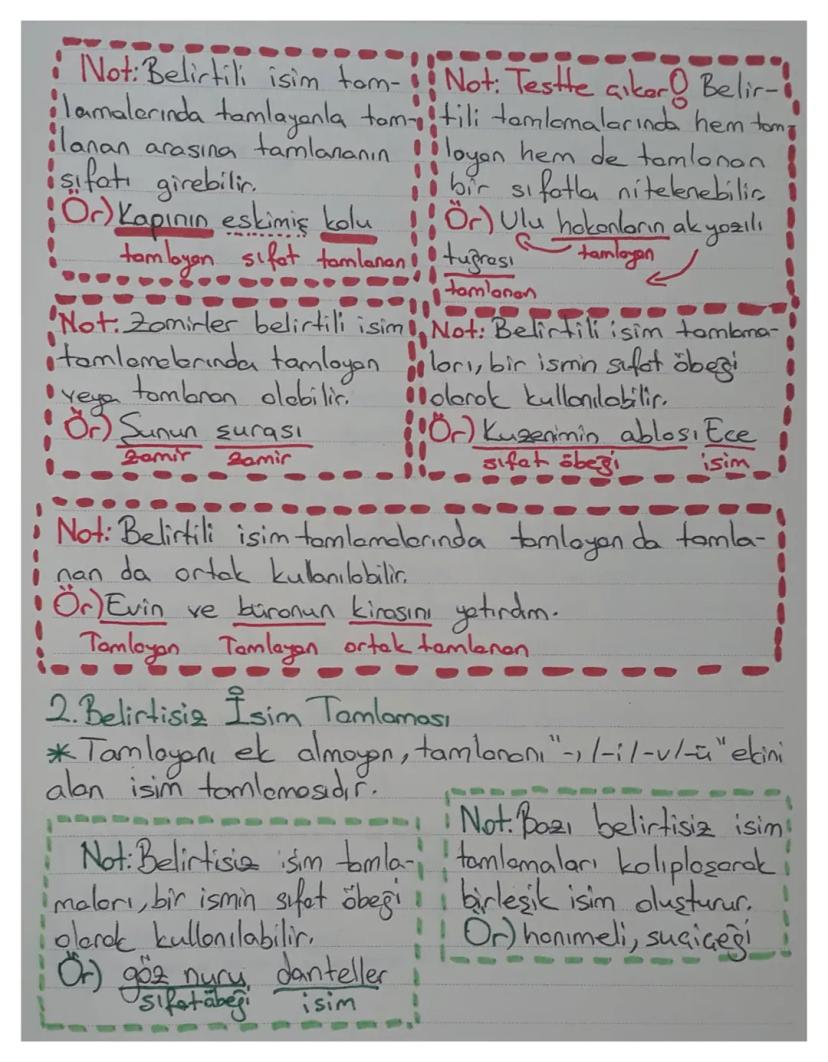 Not: Belirtili isim tam-
lamalarında tamlayanla tam-
lanan arasına tamlananın
sıfatı girebilir.
Ör) Kapının eskimiş kolu
tamlayan sıfat tamlanan
Not: Testte çıkar! Belir-
tili tamlamalarında hem tam-
layan hem de tamlanan
bir sıfatla nitelenebilir.
Ör) Ulu hakanların ak yazılı
tamlayan
tuğrası
tamlanan
Not: Zamirler belirtili isim
tamlamalarında tamlayan
veya tamlanan olabilir.
Ör) Şunun şurası
zamir zamir
Not: Belirtili isim tamlama-
ları, bir ismin sıfat öbeği
olarak kullanılabilir.
Ör) Kuzenimin ablası Ece
sıfat öbeği isim
Not: Belirtili isim tamlamalarında tamlayan da tamla-
nan da ortak kullanılabilir.
Ör) Evin ve büronun kirasını yatırdım.
Tamlayan Tamlayan ortak tamlanan
2. Belirtisiz İsim Tamlaması
* Tamlayanı ek almayan, tamlananı "-ı/-i/-u/-ü" ekini
alan isim tamlamasıdır.
Not: Belirtisiz isim tamla-
maları, bir ismin sıfat öbeği
olarak kullanılabilir.
Ör) göz nuru danteller
sıfat öbeği isim
Not: Bazı belirtisiz isim
tamlamaları kalıplaşarak
birleşik isim oluşturur.
Ör) hanımeli, suçiçeği